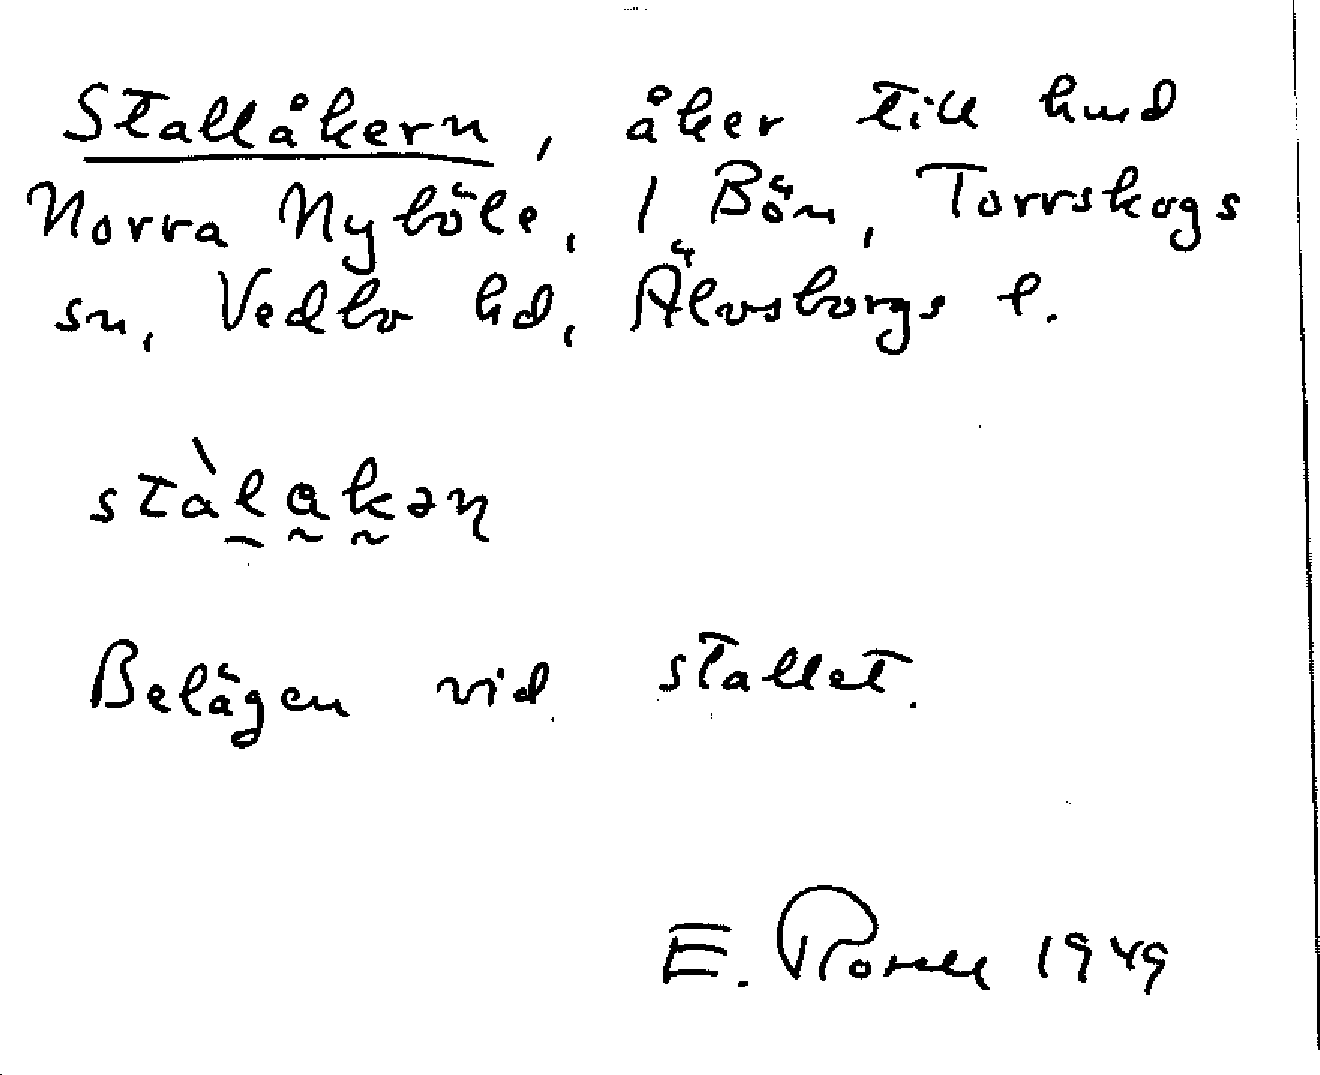 Stallåkern, åker till hmd
Norra Nyböle, 1 Bön, Torrskogs
sn, Vedbo hd, Älvsborgs l.
stàlakən
Belägen vid stallet.
E. Rosell 1949